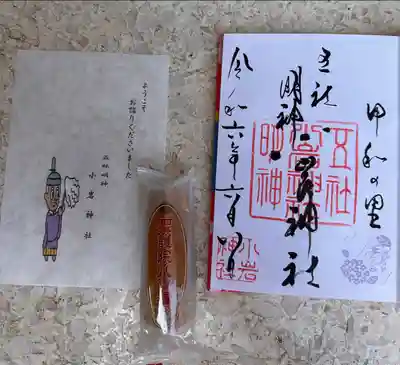 ようこそ
お詣りくださいました
五社明神
小岩神社
甲和の里
五社
明神
小岩神社
令和六年六月
五社
明神
小岩
神社